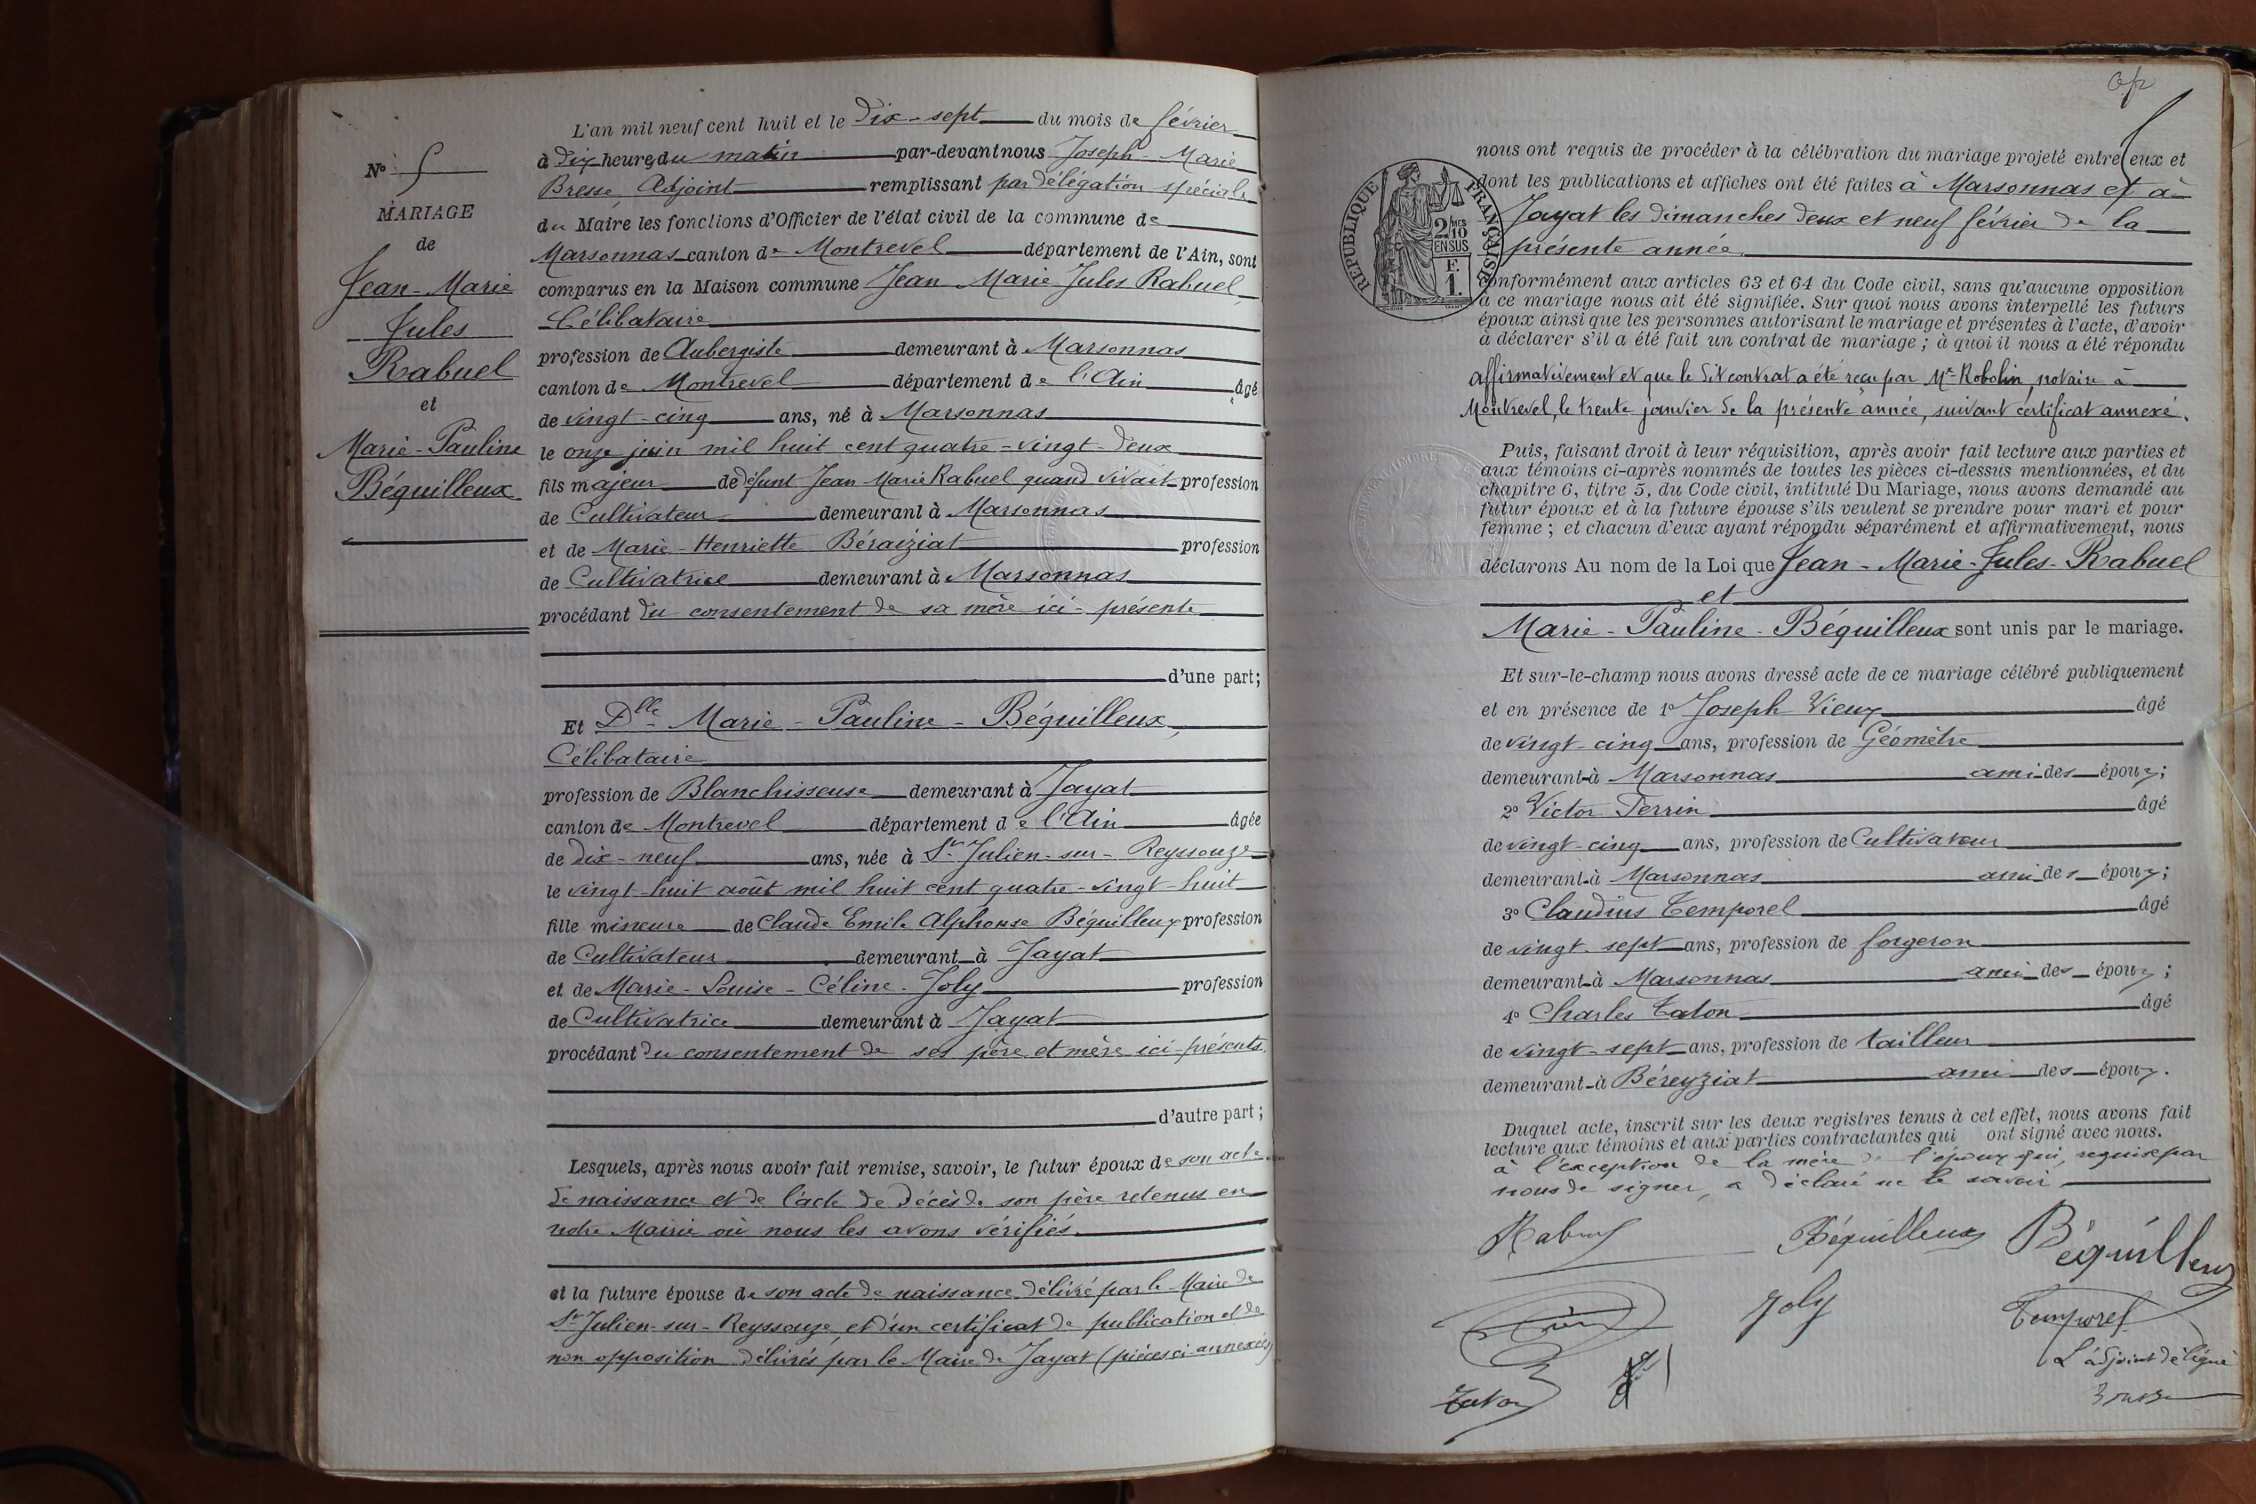 N° 5
MARIAGE
de
Jean-Marie
Jules
Rabuel
et
Marie-Pauline
Béquilleux
L'an mil neuf cent huit et le dix-sept du mois de février
à dix heures du matin par-devant nous Joseph-Marie
Bresse, Adjoint remplissant par délégation spéciale
du Maire les fonctions d'Officier de l'état civil de la commune de
Marsonnas canton de Montrevel département de l'Ain, sont
comparus en la Maison commune Jean Marie Jules Rabuel,
Célibataire
profession de Aubergiste demeurant à Marsonnas
canton de Montrevel département de l'Ain âgé
de vingt-cinq ans, né à Marsonnas
le onze juin mil huit cent quatre-vingt-deux
fils majeur de défunt Jean Marie Rabuel quand vivait profession
de Cultivateur demeurant à Marsonnas
et de Marie-Henriette Béraiziat profession
de Cultivatrice demeurant à Marsonnas
procédant du consentement de sa mère ici-présente
d'une part;
Et Dlle Marie-Pauline-Béquilleux,
Célibataire
profession de Blanchisseuse demeurant à Jayat
canton de Montrevel département de l'Ain âgée
de dix-neuf ans, née à St Julien-sur-Reyssouze
le vingt-huit août mil huit cent quatre-vingt-huit
fille mineure de Claude Emile Alphonse Béquilleux profession
de Cultivateur demeurant à Jayat
et de Marie-Louise-Céline-Joly profession
de Cultivatrice demeurant à Jayat
procédant du consentement de ses père et mère ici-présents.
d'autre part;
Lesquels, après nous avoir fait remise, savoir, le futur époux de son acte
de naissance et de l'acte de décès de son père retenus en
notre Mairie où nous les avons vérifiés.
et la future épouse de son acte de naissance délivré par le Maire de
St Julien-sur-Reyssouze, et d'un certificat de publication et de
non opposition délivrés par le Maire de Jayat (pièces ci-annexées)
RÉPUBLIQUE FRANÇAISE
2/10
EN SUS
F.
1.
nous ont requis de procéder à la célébration du mariage projeté entre eux et
dont les publications et affiches ont été faites à Marsonnas et à
Jayat les dimanches deux et neuf février de la
présente année.
conformément aux articles 63 et 64 du Code civil, sans qu'aucune opposition
à ce mariage nous ait été signifiée. Sur quoi nous avons interpellé les futurs
époux ainsi que les personnes autorisant le mariage et présentes à l'acte, d'avoir
à déclarer s'il a été fait un contrat de mariage; à quoi il nous a été répondu
affirmativement et que le dit contrat a été reçu par Me Robolin, notaire à
Montrevel, le trente janvier de la présente année, suivant certificat annexé.
Puis, faisant droit à leur réquisition, après avoir fait lecture aux parties et
aux témoins ci-après nommés de toutes les pièces ci-dessus mentionnées, et du
chapitre 6, titre 5, du Code civil, intitulé Du Mariage, nous avons demandé au
futur époux et à la future épouse s'ils veulent se prendre pour mari et pour
femme; et chacun d'eux ayant répondu séparément et affirmativement, nous
déclarons Au nom de la Loi que Jean-Marie-Jules-Rabuel
et
Marie-Pauline-Béquilleux sont unis par le mariage.
Et sur-le-champ nous avons dressé acte de ce mariage célébré publiquement
et en présence de 1° Joseph Vieux âgé
de vingt-cinq ans, profession de Géomètre
demeurant à Marsonnas ami des époux;
2° Victor Perrin âgé
de vingt-cinq ans, profession de Cultivateur
demeurant à Marsonnas ami des époux;
3° Claudius Temporel âgé
de vingt-sept ans, profession de forgeron
demeurant à Marsonnas ami des époux;
4° Charles Taton âgé
de vingt-sept ans, profession de tailleur
demeurant à Béreyziat ami des époux.
Duquel acte, inscrit sur les deux registres tenus à cet effet, nous avons fait
lecture aux témoins et aux parties contractantes qui ont signé avec nous.
à l'exception de la mère de l'époux qui, requise par
nous de signer, a déclaré ne le savoir
Rabuel Béquilleux Béquilleux
Joly Temporel
L'adjoint délégué
Taton Bresse